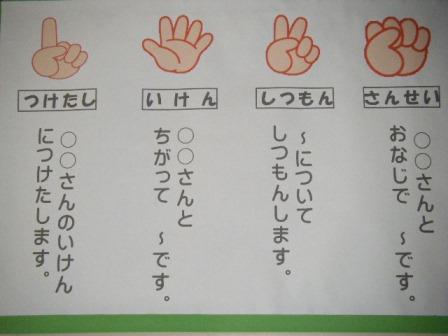 さんせい
○○さんと
おなじで ～です。
しつもん
～について
しつもんします。
いけん
○○さんと
ちがって ～です。
つけたし
○○さんのいけん
につけたします。